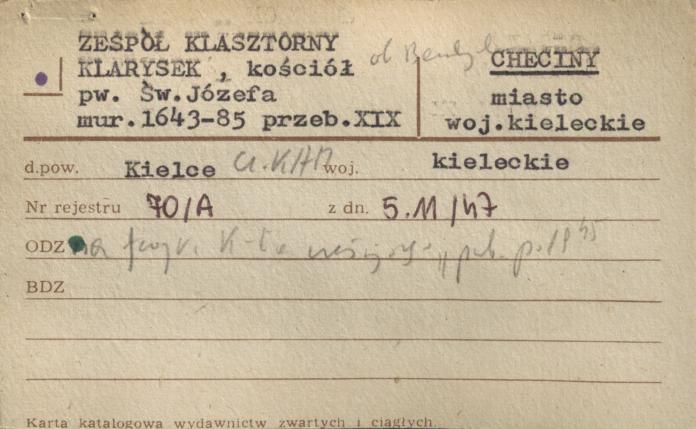 ZESPÓŁ KLASZTORNY
KLARYSEK , kościół
pw. Św.Józefa
mur.1643-85 przeb.XIX
ob
CHĘCINY
miasto
woj.kieleckie
d.pow. Kielce woj. kieleckie
Nr rejestru 70/A z dn. 5.11/47
ODZ
BDZ
Karta katalogowa wydawnictw zwartych i ciągłych.